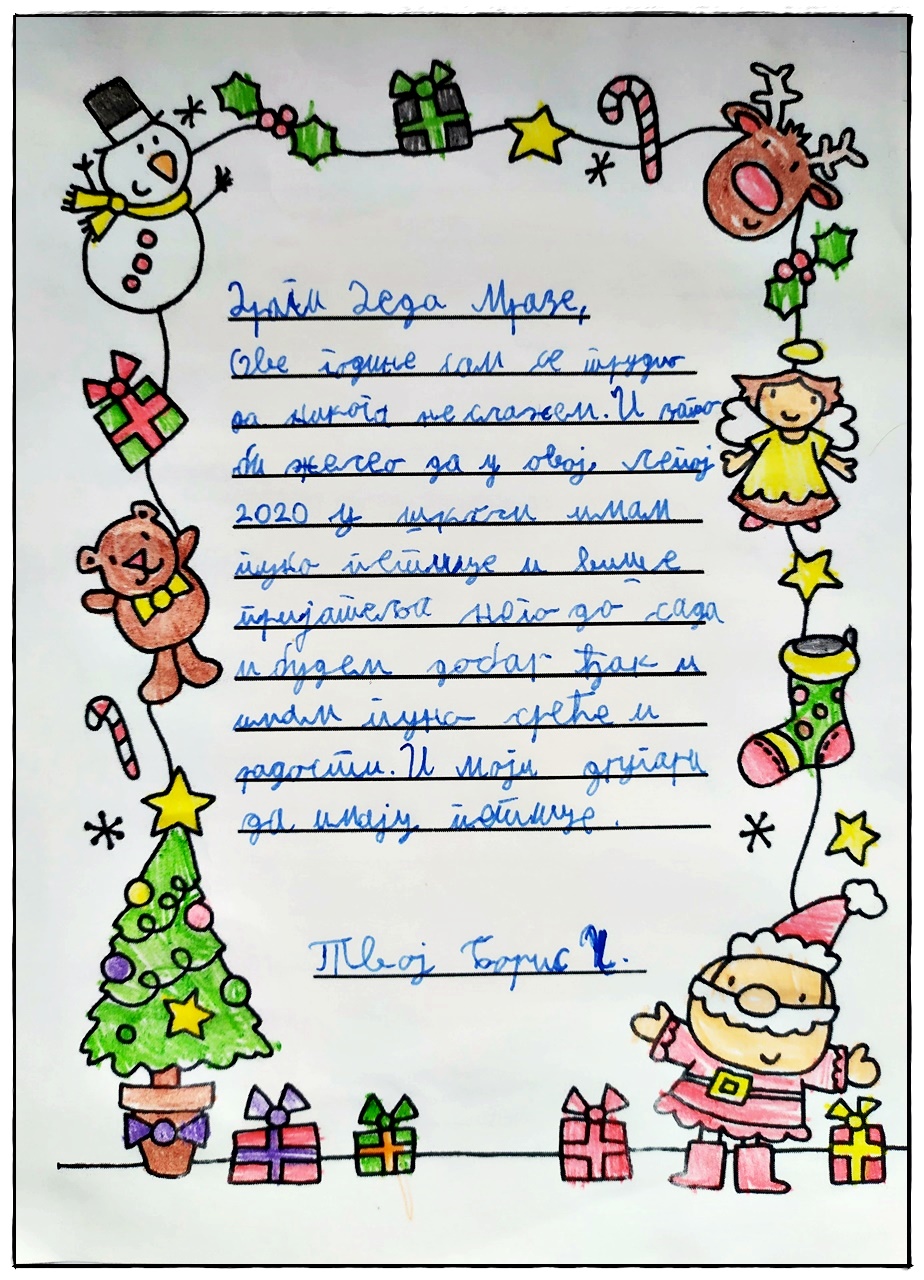 Драги Деда Мразе,
Ове године сам се трудио
да никога не слажем. И зато
би желео да у овој, лепој
2020 у школи имам
пуно петица и више
пријатеља него до сада
и будем добар ђак и
имам пуно среће и
радости. И моји другари
да имају петице.
Твој Борис И.